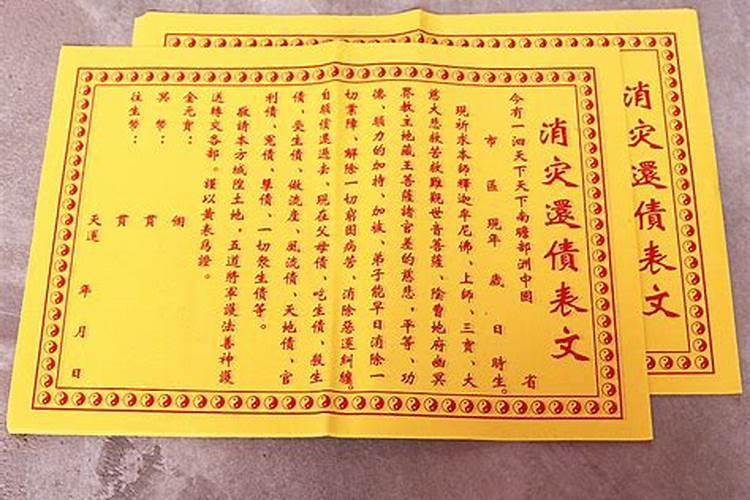 消灾還債表文
今有一泗天下天下南瞻部洲中國 省
市 區 現年 歲 日 時生。
現祈求本師釋迦牟尼佛、上師、三寶、大
慈大悲救苦救難觀世音菩薩、陰曹地府幽冥
界教主地藏王菩薩諸官差的慈悲，平等、功
德、願力的加持、加被、弟子能早日消除一
切業障、解除一切窮困病苦、消除惡運糾纏。
自願償還過去、現在父母債、吃生債、殺生
債、受生債、做流産、風流債、天地債、官
利債、冤債、孽債、一切衆生債等。
敬請本方城隍土地，五道將軍護法善神護
送轉交各部。謹以黄表爲證。
金元寶： 個
冥幣： 貫
往生幣： 貫
天運 年 月 日
消灾還債表文